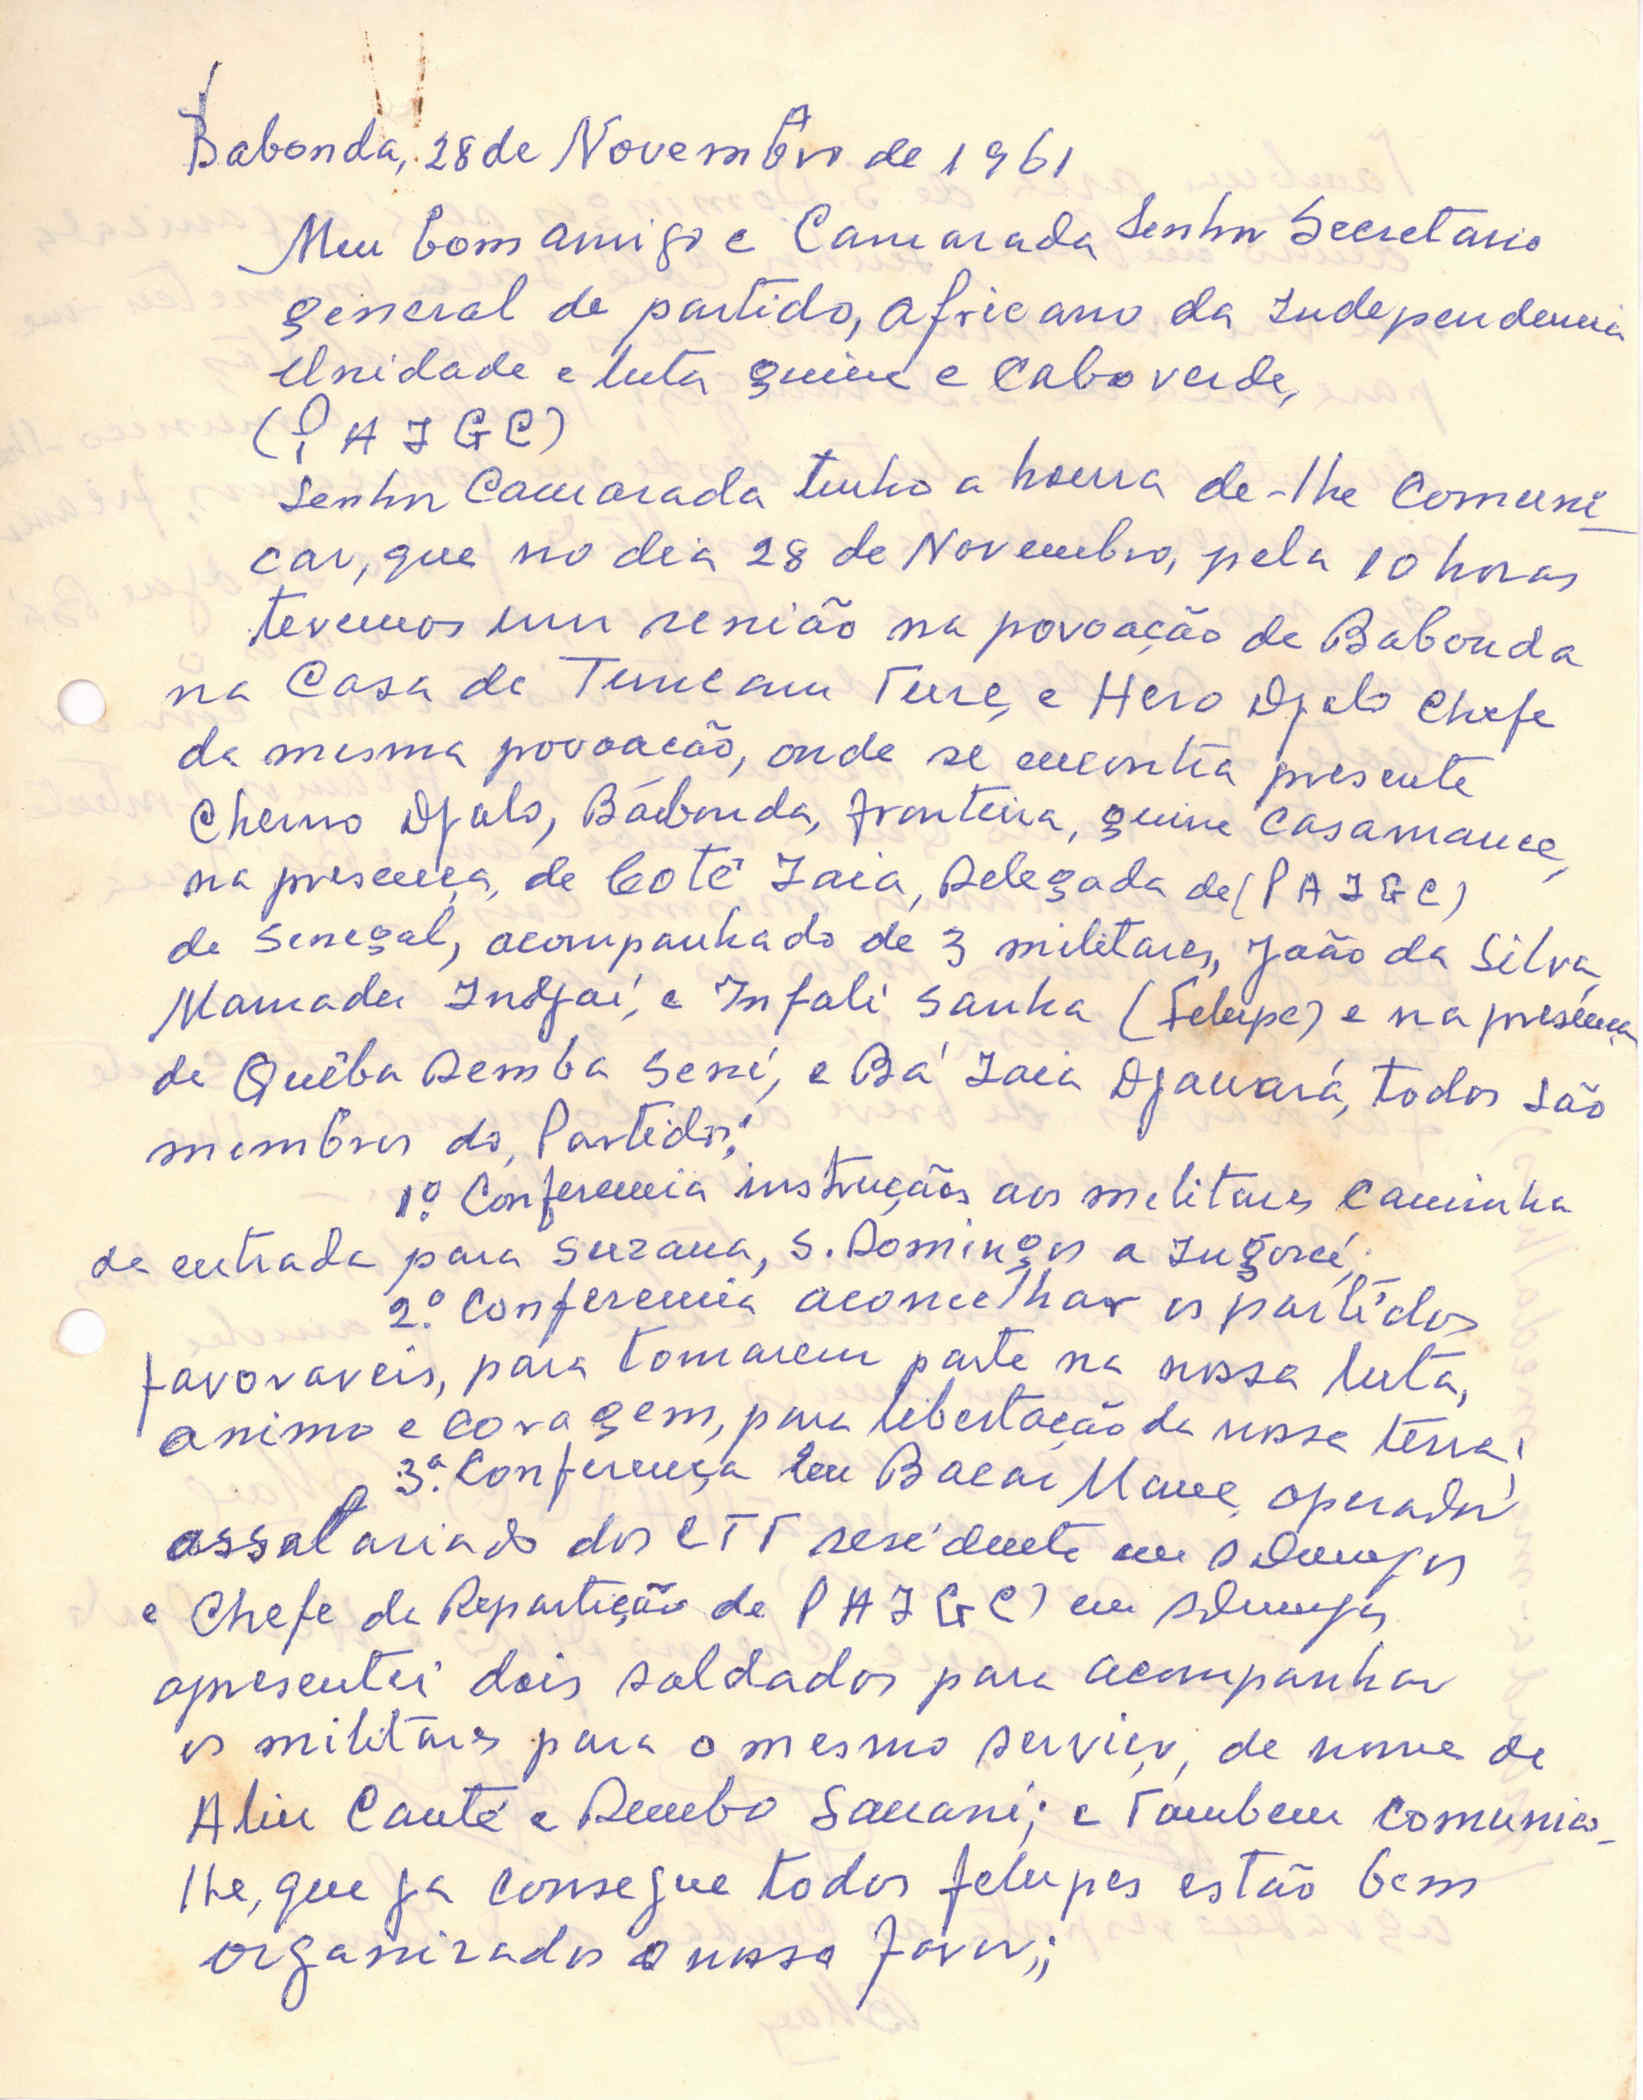 Babonda, 28 de Novembro de 1961
Meu bom amigo e Camarada Senhor Secretario
general de partido, africano da Independencia
Unidade e luta guine e Cabo verde,
(P A I G C)
Senhor Camarada tenho a honra de-lhe Comuni-
car, que no dia 28 de Novembro, pela 10 horas
tevemos um renião na povoação de Babonda
na Casa de Ture, e Hero Djalo Chefe
da mesma povoacão, onde se encontra presente
Cherno Djalo, Bábonda, fronteira, guine Casamance,
na presença, de Coté Iaia, Delegada de (P A I G C)
de Senegal, acompanhado de 3 militares, João da Silva,
Mamadu Indjai, e Infali Sanha (Felupe) e na presença
de Quêba Demba Seni, e Bá Iaia Djauará, todos são
membros do, Partidos;
1º. Conferencia instruçãos aos militares Caminha
de entrada para Suzana, S. Domingos a Ingoré,
2º. Conferencia aconselhar os partidos
favoraveis, para tomarem parte na nossa luta,
animo e coragem, para libertação da nossa terra;
3ª. Conferença Eu Bacar Mane, operador
assalariado dos CTT residente em SDomingos
e Chefe da Repartição de P A I G C) em SDomingos
apresentei dois soldados para acompanhar
os militares para o mesmo serviço, de nome de
Aliu Canté e Dembo Sanani; e Tambem comunico-
lhe, que ja consegue todos felupes estão bem
organizados a nosso favor;;